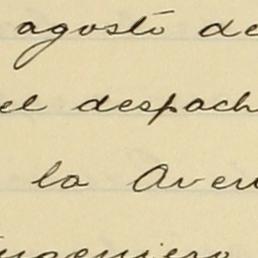 agosto de
el despach
la Aven
ingeniero